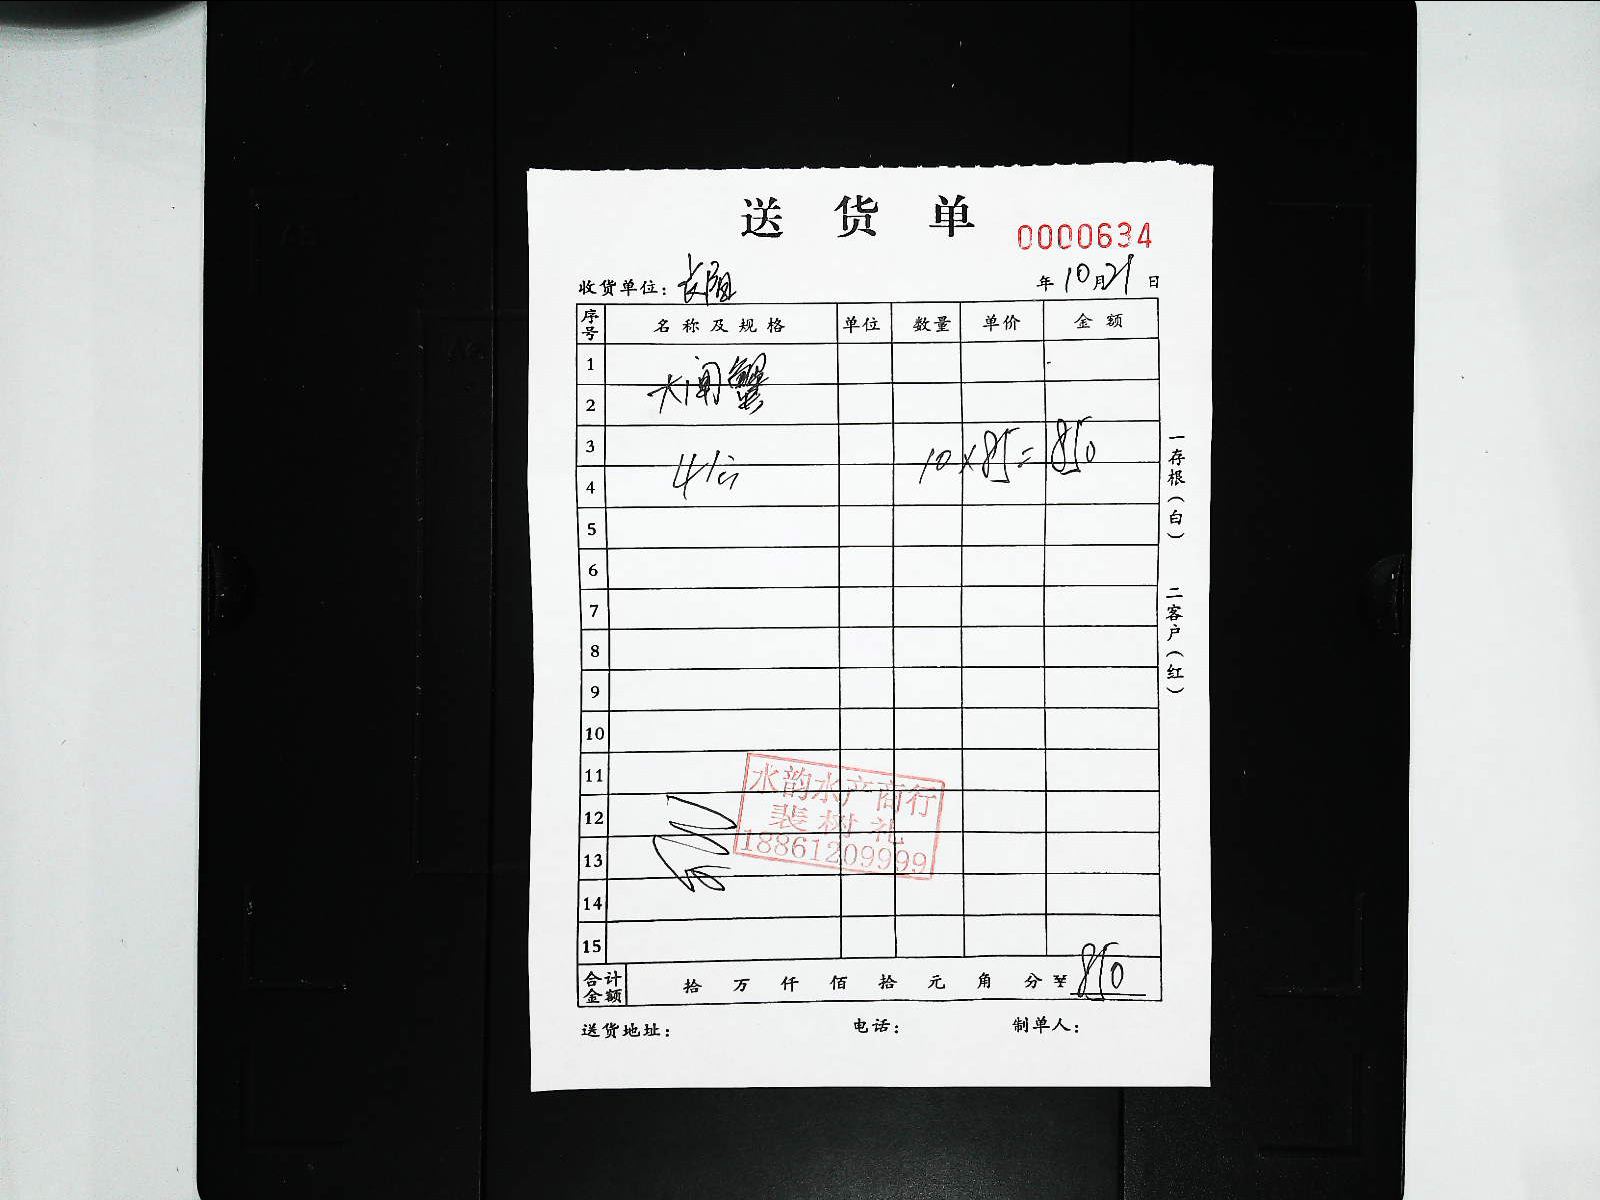 送货单
0000634
收货单位：
年10月21日
序号 名称及规格 单位 数量 单价 金额
1
大闸蟹
2
3
4 10×85=850
5
6
7
8
9
10
11
12
13
14
15
水韵水产商行
裴树礼
18861209999
合计金额 拾 万 仟 佰 拾 元 角 分 ¥ 850
送货地址： 电话： 制单人：
一存根（白） 二客户（红）